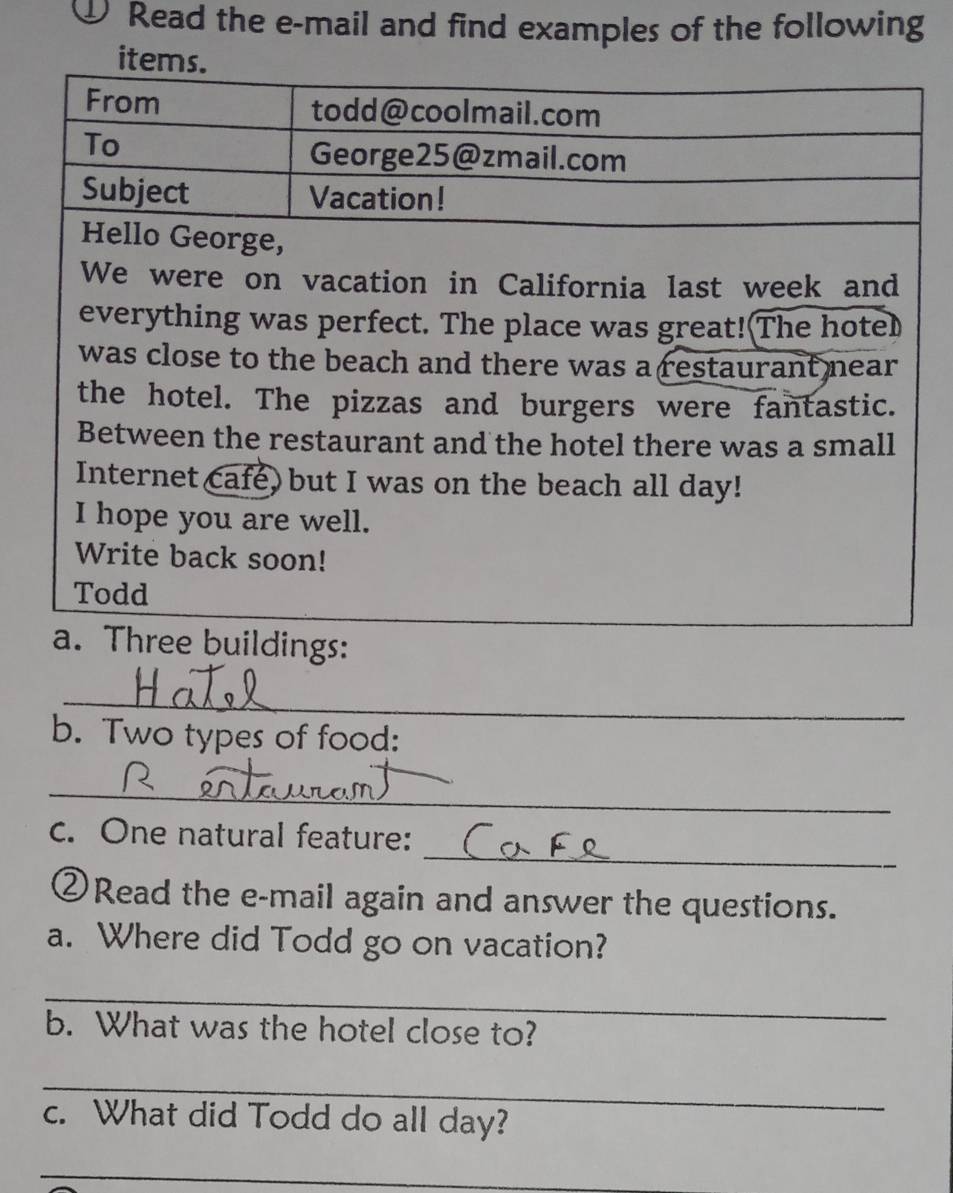 ① Read the e-mail and find examples of the following
items.
From todd@coolmail.com
To George25@zmail.com
Subject Vacation!
Hello George,
We were on vacation in California last week and
everything was perfect. The place was great! The hotel
was close to the beach and there was a restaurant near
the hotel. The pizzas and burgers were fantastic.
Between the restaurant and the hotel there was a small
Internet café, but I was on the beach all day!
I hope you are well.
Write back soon!
Todd
a. Three buildings:
Hatel
b. Two types of food:
R entaurant
c. One natural feature: Cafe
② Read the e-mail again and answer the questions.
a. Where did Todd go on vacation?
b. What was the hotel close to?
c. What did Todd do all day?